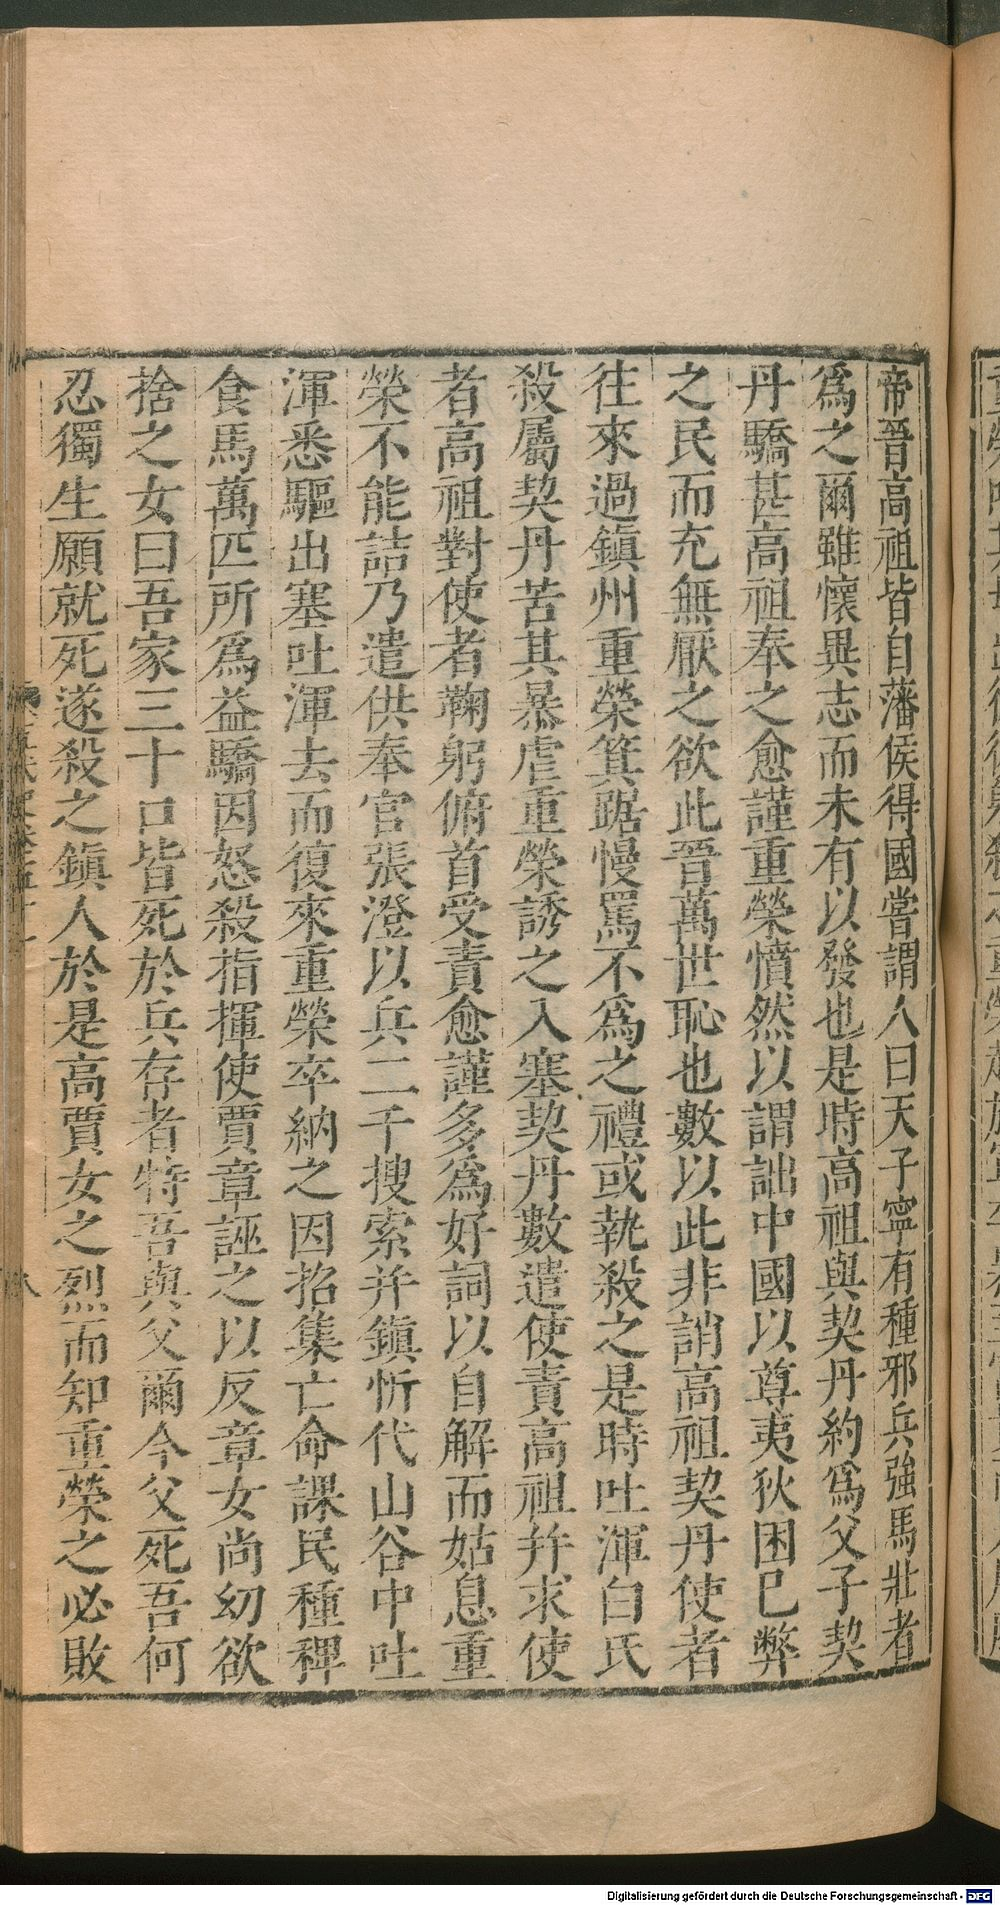 帝晉高祖皆自藩侯得國嘗謂人曰天子寧有種邪兵強馬壯者
爲之爾雖懷異志而未有以發也是時高祖與契丹約爲父子契
丹驕甚高祖奉之愈謹重榮憤然以謂詘中國以尊夷狄困巳弊
之民而充無厭之欲此晉萬世恥也數以此非誚高祖契丹使者
往來過鎭州重榮箕踞慢罵不爲之禮或執殺之是時吐渾白氏
殺屬契丹苦其暴虐重榮誘之入塞契丹數遣使責高祖并求使
者高祖對使者鞠躬俯首受責愈謹多爲好詞以自解而姑息重
榮不能詰乃遣供奉官張澄以兵二千搜索并鎭忻代山谷中吐
渾悉驅出塞吐渾去而復來重榮卒納之因招集亡命課民種稗
食馬萬匹所爲益驕因怒殺指揮使賈章誣之以反章女尚幼欲
捨之女曰吾家三十口皆死於兵存者特吾與父爾今父死吾何
忍獨生願就死遂殺之鎭人於是高賈女之烈而知重榮之必敗
八
Digitalisierung gefördert durch die Deutsche Forschungsgemeinschaft - DFG